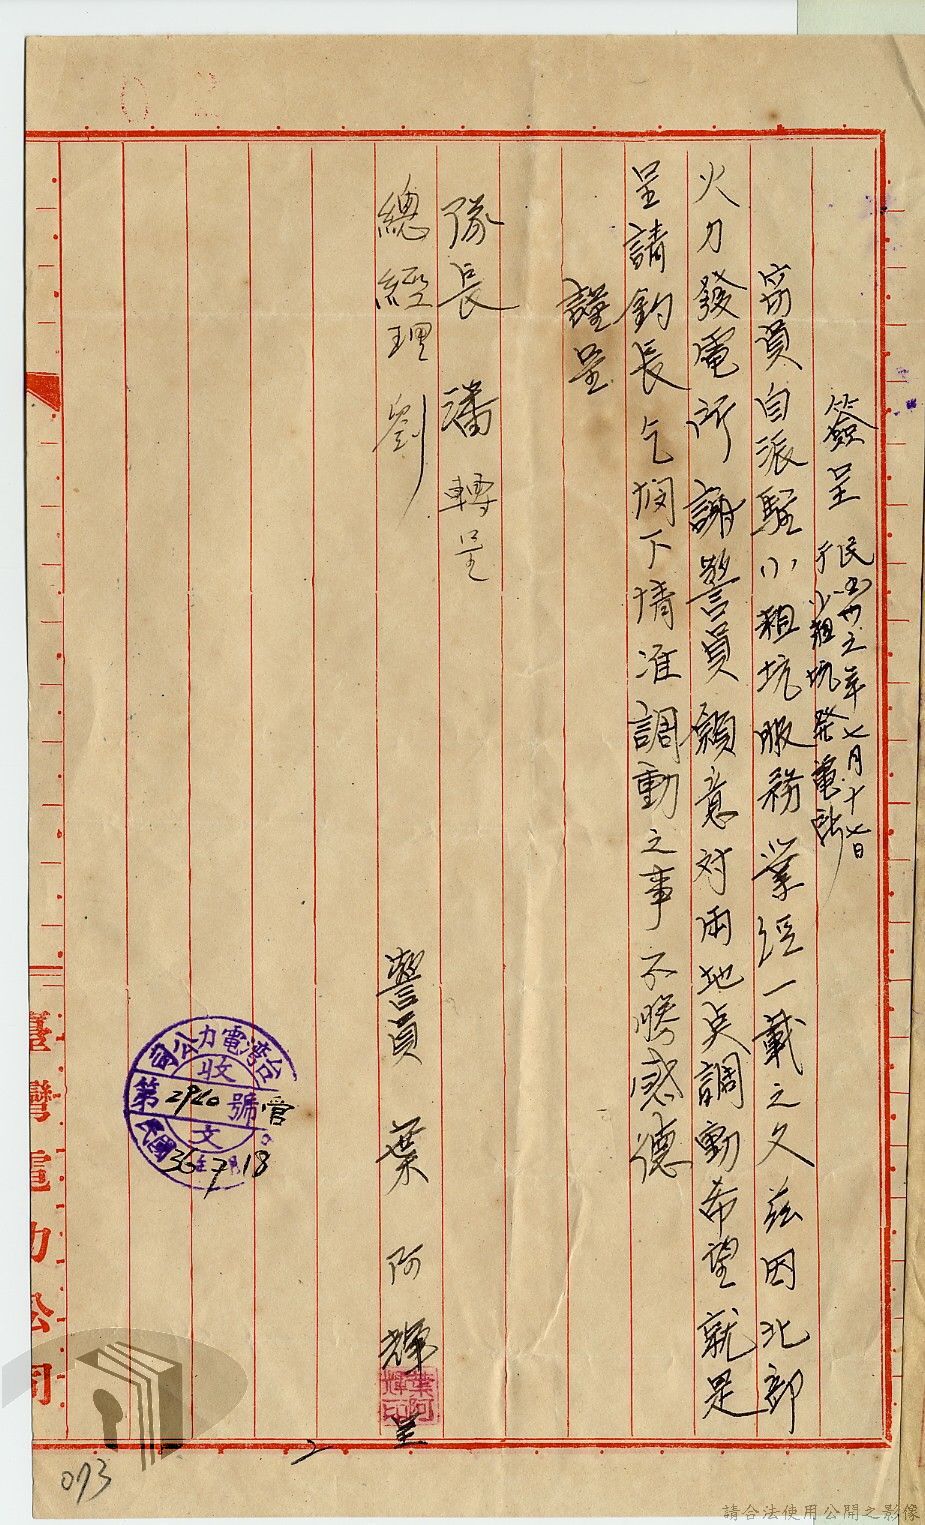 02
簽呈 民國卅六年七月十七日
于小粗坑発電所
窃員自派駐小粗坑服務業經一載之久茲因北部
火力發電所謝警員願意対両地点調動希望就是
呈請鈞長乞憫下情准調動之事不勝感德
謹呈
隊長 潘 轉呈
總經理 劉
警員 葉阿輝 呈
葉阿輝印
台湾電力公司
收文
第2960號
管
民國36年7月18日
臺灣電力公司
073
請合法使用公開之影像